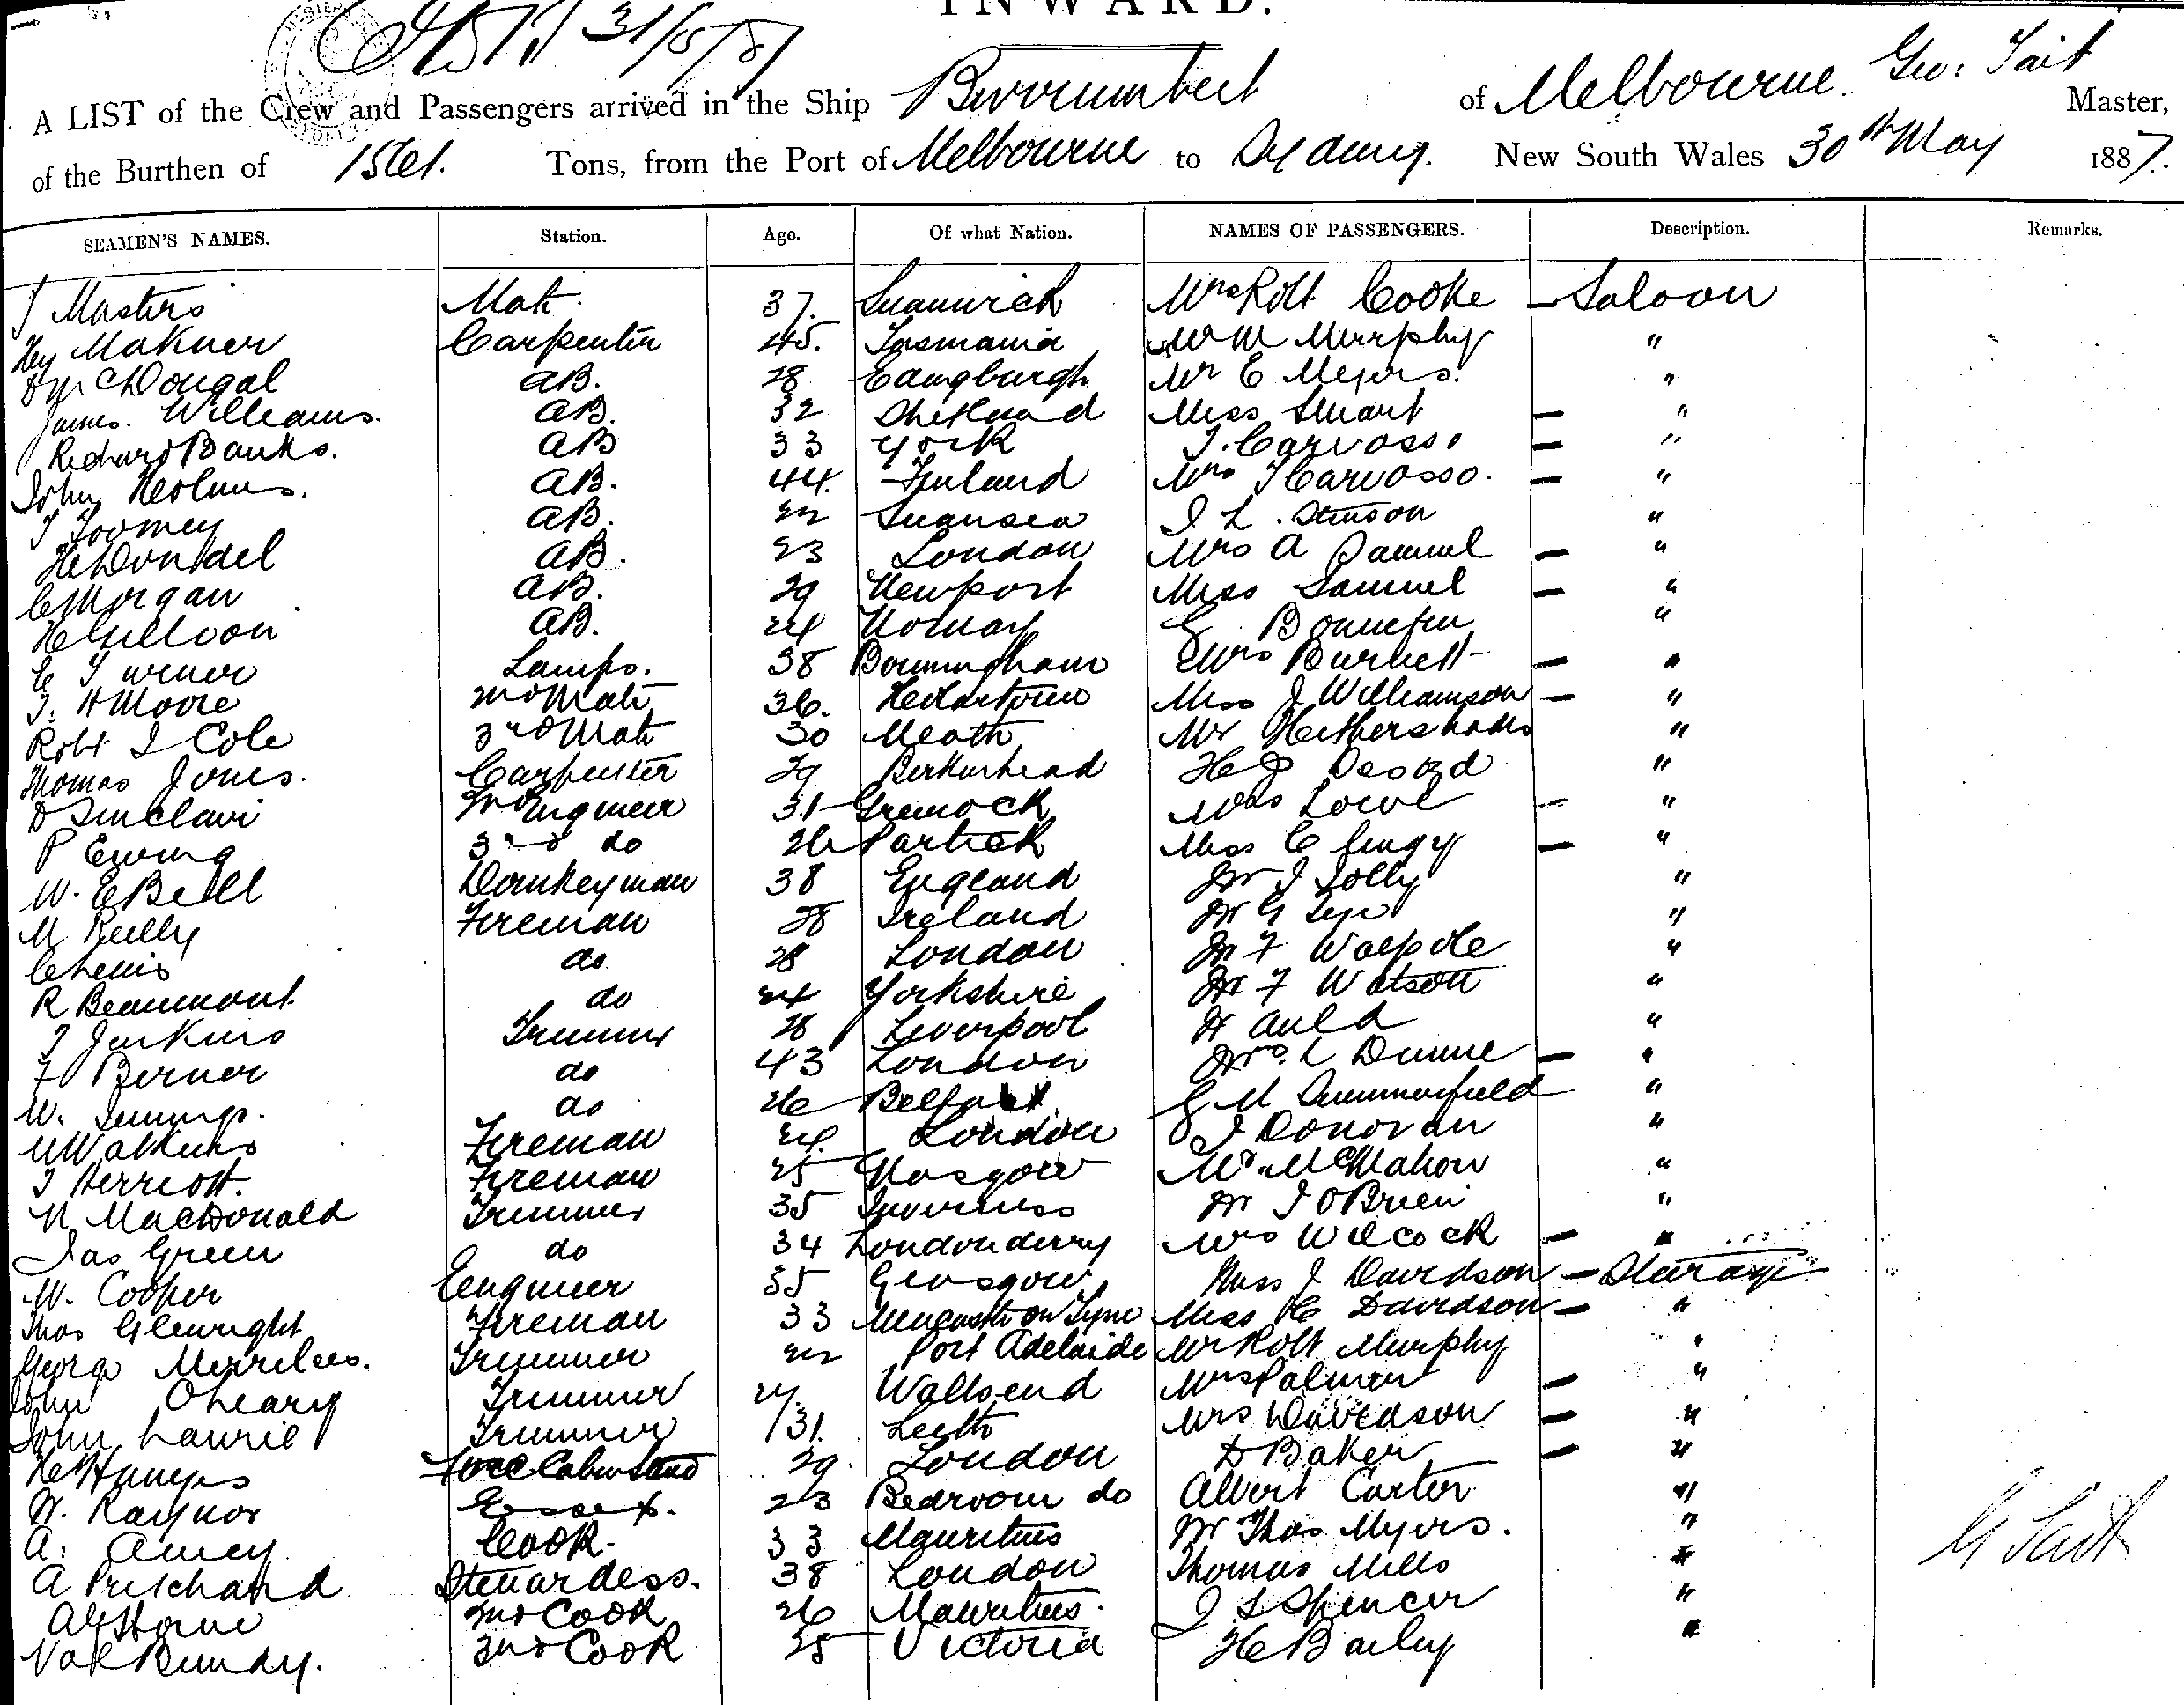 INWARD.
A LIST of the Crew and Passengers arrived in the Ship Burrumbeet of Melbourne. Geo: Tait Master,
of the Burthen of Tons, from the Port of Melbourne to Sydney. New South Wales 30th May 1887.
SEAMEN'S NAMES. Station. Age. Of what Nation. NAMES OF PASSENGERS. Description. Remarks.
J Masters Mate 37. Mrs Robt Cooke — Saloon
Hy Carpenter 45. Tasmania Mr W Murphy "
D McDougal AB. 28 Mr E Meyers. "
James. Williams. AB. 32 Shetland Miss Stuart — "
Richard Banks. AB 33 York J. Carvosso — "
John Holmes. AB. 44. Finland Mrs J Carvosso. — "
T Toomey AB. 22 Swansea J L. Stinson "
AB. 23 London Mrs A Samuel — "
C Morgan AB. 29 Newport Miss Samuel — "
AB. 24 Norway "
C Turner Lamps. 38 Birmingham Mrs Burnett — "
J. H Moore 2nd Mate 36. Hobartown Miss J Williamson — "
Robt J Cole 3rd Mate 30 Meath Mr "
Thomas Jones. Carpenter 29 Birkenhead "
D Sinclair 2nd Engineer 31 Greenock Mrs Lowe — "
P Ewing 3rd do 26 Partick Miss C — "
W. E Bell Donkeyman 38 England Mr J Jolly "
M Reilly Fireman 28 Ireland Mr G "
C Lewis do 28 London Mr F Walpole "
R Beaumont do 24 Yorkshire Mr F Watson "
J Jenkins Trimmer 28 Liverpool H Auld "
F Berner do 43 London Mrs. L Dunne — "
W. Jennings. do 26 Belfast G M Summerfield "
M Watkins Fireman 24. London J Donovan "
J Herriott. Fireman 25 Glasgow Mr McMahon "
N MacDonald Trimmer 35 Inverness Mr J OBrien "
Jas Green do 34 Londonderry Mrs Wilcock — "
W. Cooper Eengineer 35 Glasgow Miss J Davidson — Starage
Thos Glenwright Fireman 33 Newcastle on Tyne Miss C Davidson — "
George Merrilees. Trimmer 22 Port Adelaide Mr Robt Murphy "
John OLeary Trimmer 27. Wallsend Mrs Palmer — "
John Laurie Trimmer 31. Leith Mrs Davidson — "
29 London D Baker — "
H. Raynor Essex. 23 Bedroom do Albert Carter "
A. Amey Cook. 33 Mauritius Mr Thos Myers. "
A Pritchard Stewardess. 38 London Thomas Mills "
2nd Cook 26 Mauritius. J L Spencer "
3rd Cook 25 Victoria H Bailey "
G Tait